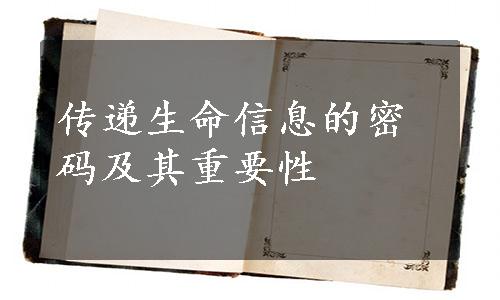 传递生命信息的密
码及其重要性